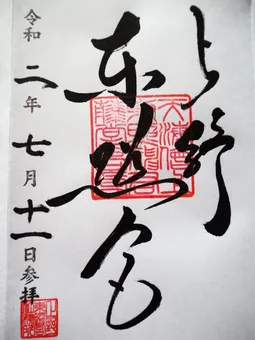 上野
東照宮
令和二年七月十一日参拝